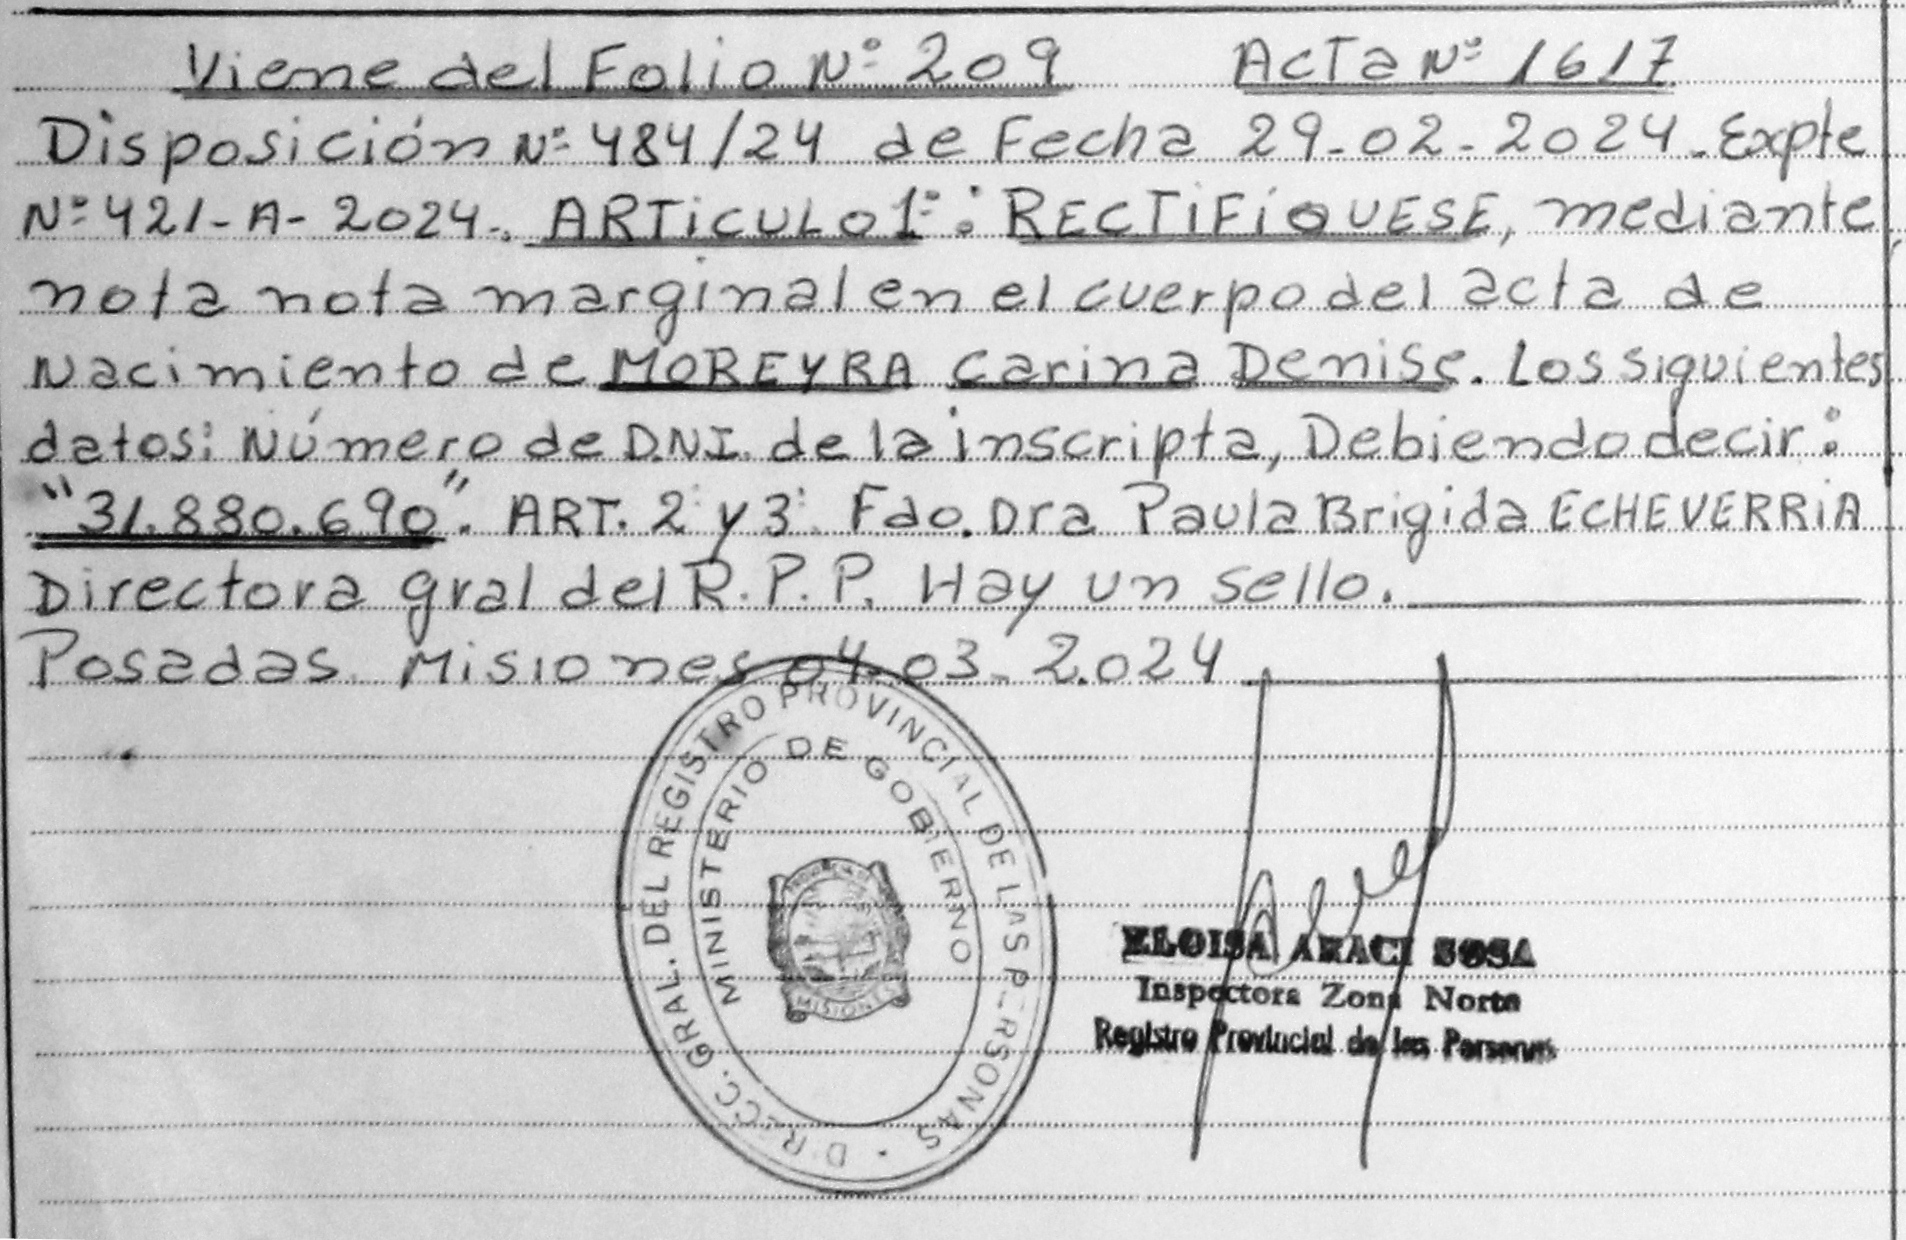 Viene del Folio Nº 209 Acta Nº 1617
Disposición Nº 484/24 de Fecha 29-02-2024. Expte
Nº 421-A-2024-. ARTiCULO 1º: RECTiFíQUESE, mediante
nota nota marginal en el cuerpo del acta de
Nacimiento de MOREYRA Carina Denise. Los siguientes
datos: Número de D.N.I. de la inscripta, Debiendo decir:
"31.880.690". ART. 2º y 3º Fdo. Dra Paula Brigida ECHEVERRiA
Directora gral del R.P.P. Hay un sello.
Posadas Misiones 04-03-2.024
DIRECC. GRAL. DEL REGISTRO PROVINCIAL DE LAS PERSONAS
MINISTERIO DE GOBIERNO
PROVINCIA DE
MISIONES
ELOISA ARACI SOSA
Inspectora Zona Norte
Registro Provincial de las Personas